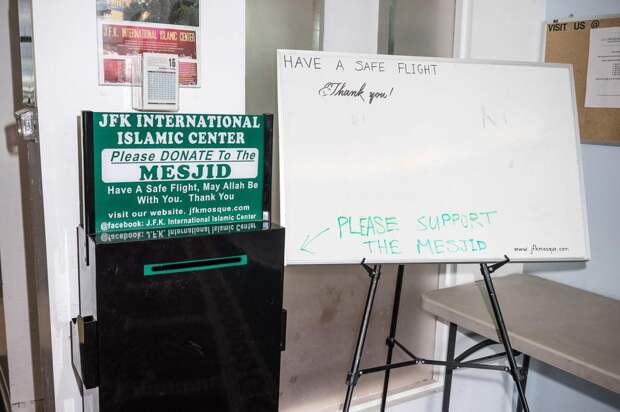 J.F.K. INTERNATIONAL ISLAMIC CENTER
16
JFK INTERNATIONAL
ISLAMIC CENTER
Please DONATE To The
MESJID
Have A Safe Flight, May Allah Be
With You. Thank You
visit our website. jfkmosque.com
@facebook: J.F.K. International Islamic Center
HAVE A SAFE FLIGHT
& Thank you!
PLEASE SUPPORT
THE MESJID
www.jfkmosque.com
VISIT US @